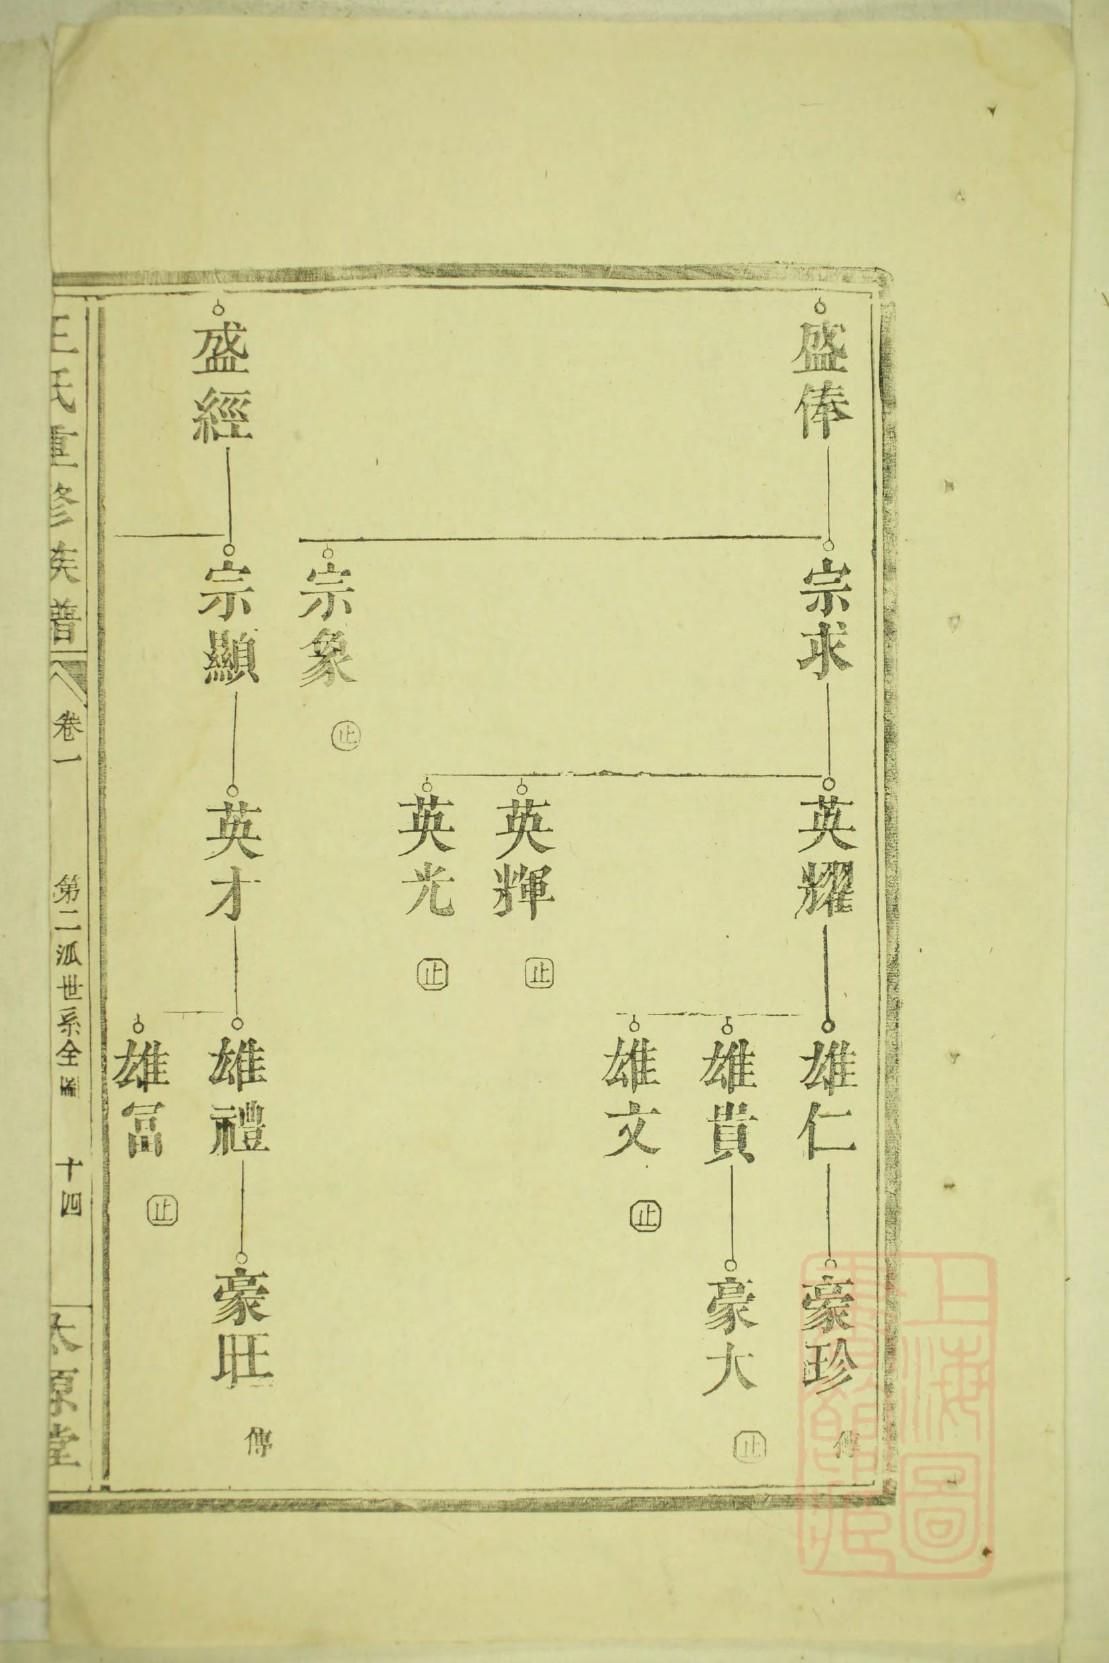 盛俸
宗求
英耀
雄仁
豪珍
傳
雄貴
豪大
止
雄文
止
英輝
止
英光
止
宗象
止
盛經
宗顯
英才
雄禮
豪旺
傳
雄冨
止
王氏重修族普
卷一
第二派世系全圖
十四
太原堂
上海圖
書館藏